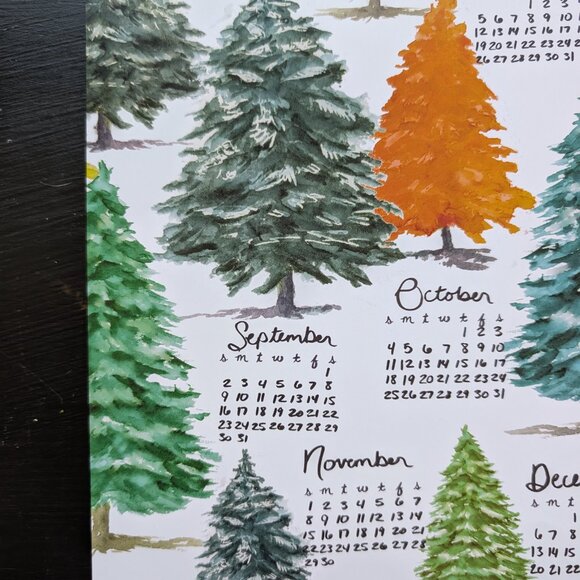 1 2 3
5 6 7 8 9 10
12 13 14 15 16 17
19 20 21 22 23 24
26 27 28 29 30 31
October
s m t w t f s
1 2 3
4 5 6 7 8 9 10
11 12 13 14 15 16 17
18 19 20 21 22 23 24
25 26 27 28 29 30 31
September
s m t w t f s
1
2 3 4 5 6 7 8
9 10 11 12 13 14 15
16 17 18 19 20 21 22
23 24 25 26 27 28 29
30 31
November
s m t w t f s
1 2 3 4 5 6 7
8 9 10 11 12 13 14
15 16 17 18 19 20 21
22 23 24 25 26 27 28
29 30
Dece
s m t
1
6 7 8
13 14 15
20 21 22